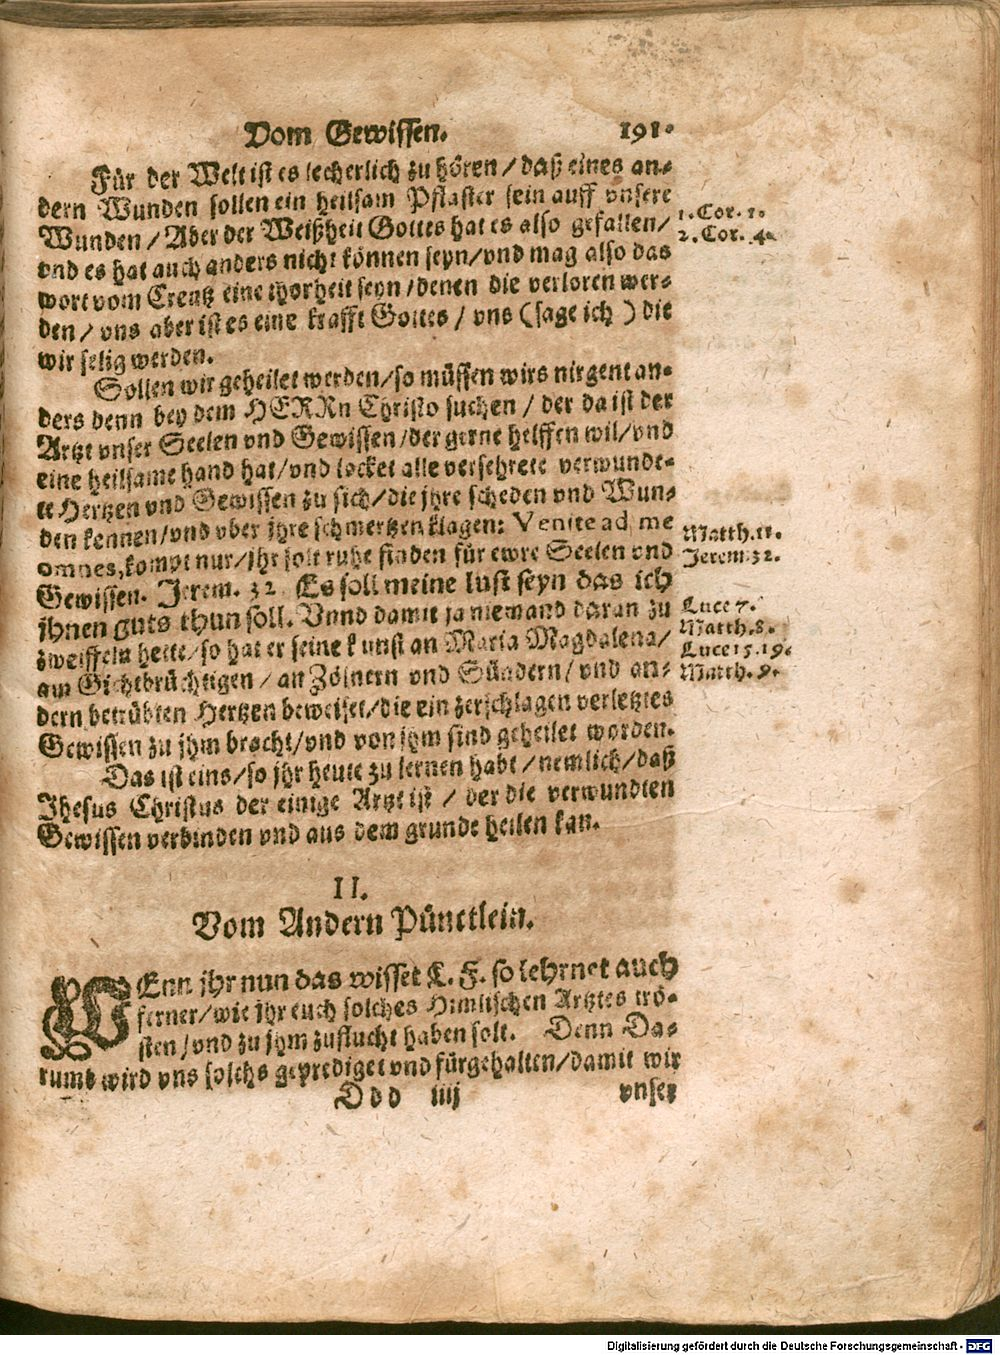 Vom Gewissen. 191.
Für der Welt ist es lecherlich zu hören / daß eines an-
dern Wunden sollen ein heilsam Pflaster sein auff vnsere
Wunden / Aber der Weißheit Gottes hat es also gefallen /
vnd es hat auch anders nicht können seyn / vnd mag also das
wort vom Creutz eine thorheit seyn / denen die verloren wer-
den / vns aber ist es eine krafft Gottes / vns (sage ich) die
wir selig werden.
1. Cor. 1.
2. Cor. 4.
Sollen wir geheilet werden / so müssen wirs nirgent an-
ders denn bey dem HERRn Christo suchen / der da ist der
Artzt vnser Seelen vnd Gewissen / der gerne helffen wil / vnd
eine heilsame hand hat / vnd locket alle versehrete verwunde-
te Hertzen vnd Gewissen zu sich / die jhre scheden vnd Wun-
den kennen / vnd vber jhre schmertzen klagen: Venite ad me
omnes, kompt nur / jhr solt ruhe finden für ewre Seelen vnd
Gewissen. Jerem. 32. Es soll meine lust seyn das ich
jhnen guts thun soll. Vnnd damit ja niemand daran zu
zweiffeln hette / so hat er seine kunst an Maria Magdalena /
am Gichtbrüchtigen / an Zölnern vnd Sündern / vnd an-
dern betrübten Hertzen beweiset / die ein zerschlagen verletztes
Gewissen zu jhm bracht / vnd von jhm sind geheilet worden.
Matth. 11.
Jerem. 32.
Luce 7.
Matth. 8.
Luce 15. 19.
Matth. 9.
Das ist eins / so jhr heute zu lernen habt / nemlich / daß
Jhesus Christus der einige Artzt ist / der die verwundten
Gewissen verbinden vnd aus dem grunde heilen kan.
II.
Vom Andern Pünctlein.
WEnn jhr nun das wisset L. F. so lehrnet auch
ferner / wie jhr euch solches Himlischen Artztes trö-
sten / vnd zu jhm zuflucht haben solt. Denn Da-
rumb wird vns solchs geprediget vnd fürgehalten / damit wir
Ddd iiij vnser
Digitalisierung gefördert durch die Deutsche Forschungsgemeinschaft - DFG